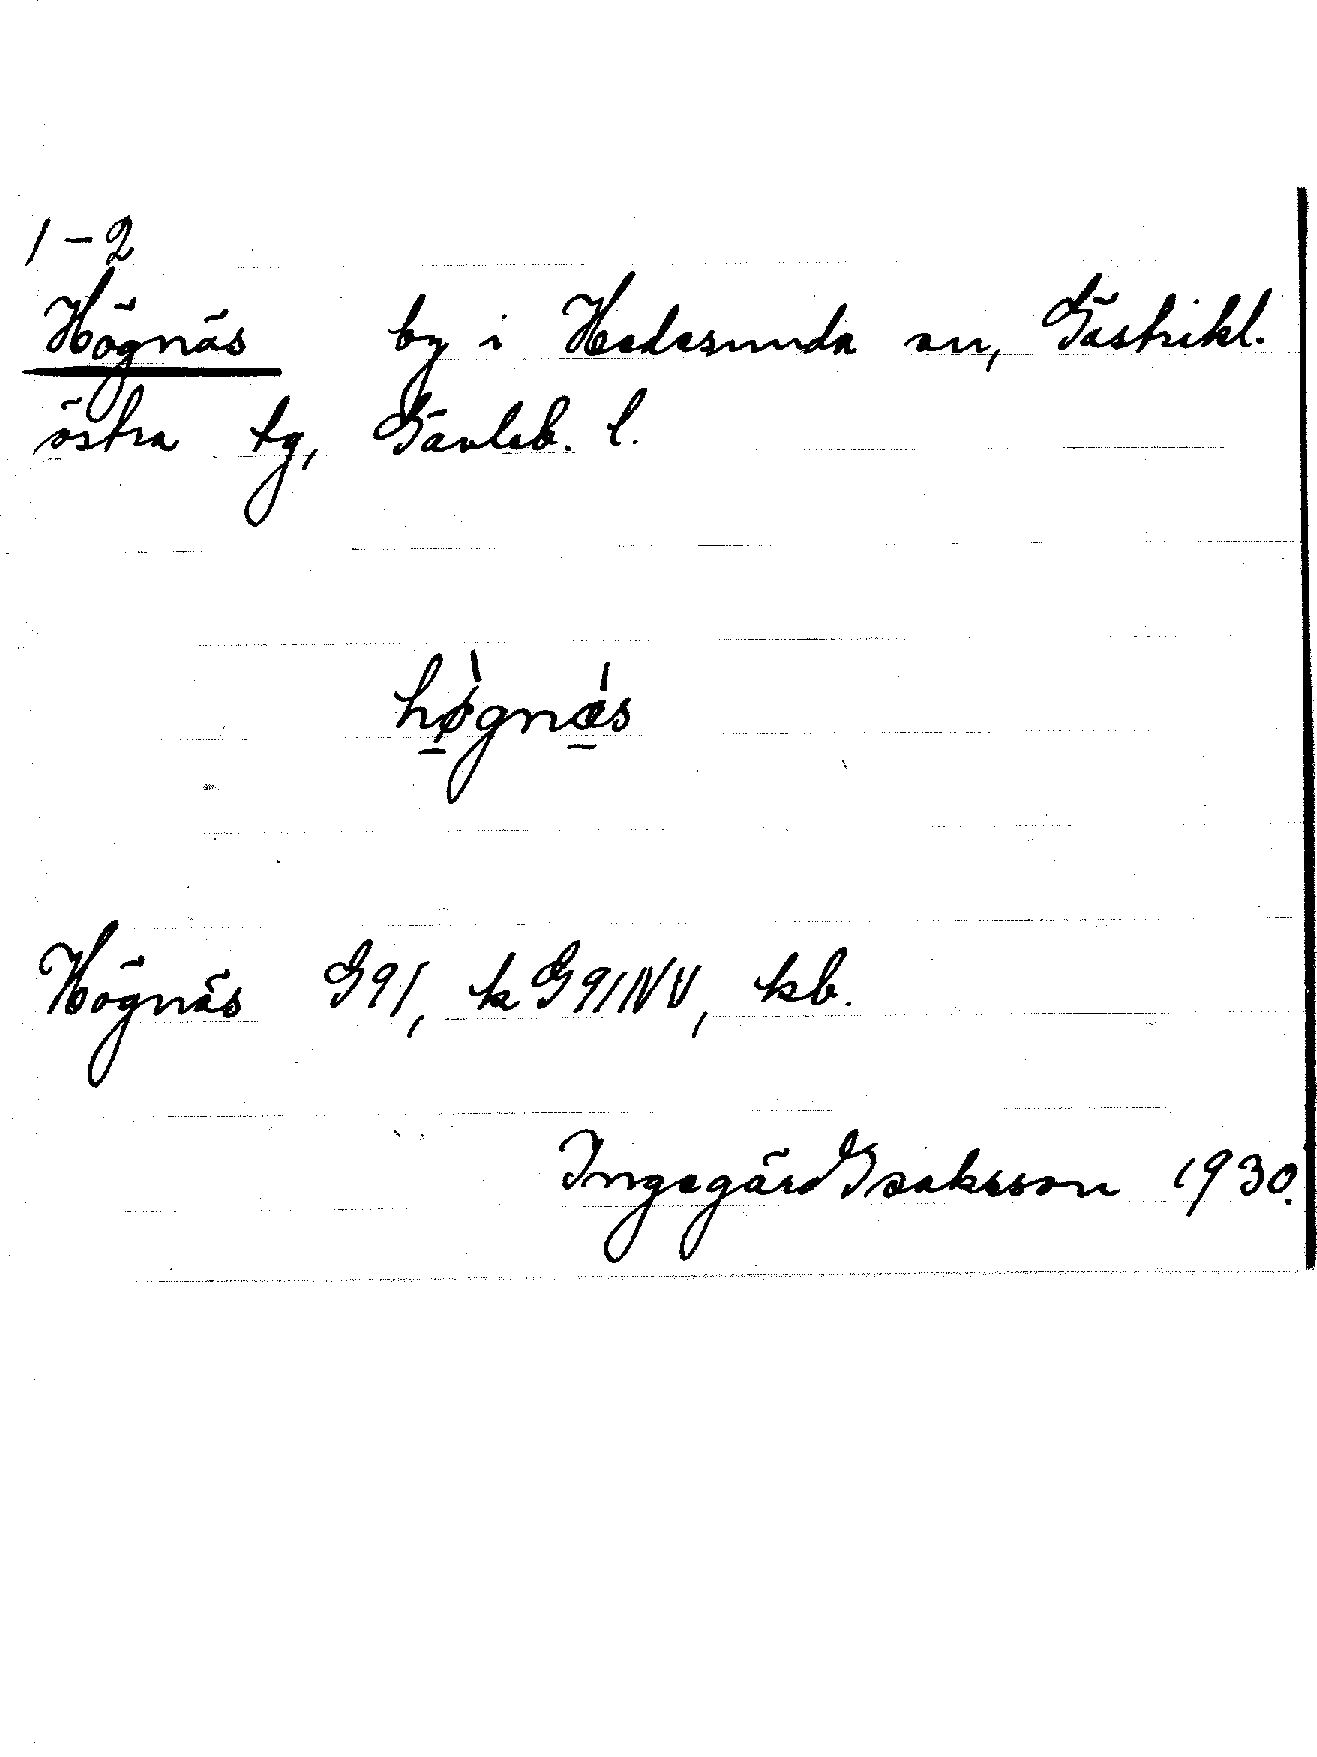 1-2
Högnäs by i Hedesunda sn, Gästrikl.
östra tg, Gävleb. l.
hø̱̀gnǽ̱s
Högnäs G91, k G91NV, kb.
Ingegärd Isaksson 1930.